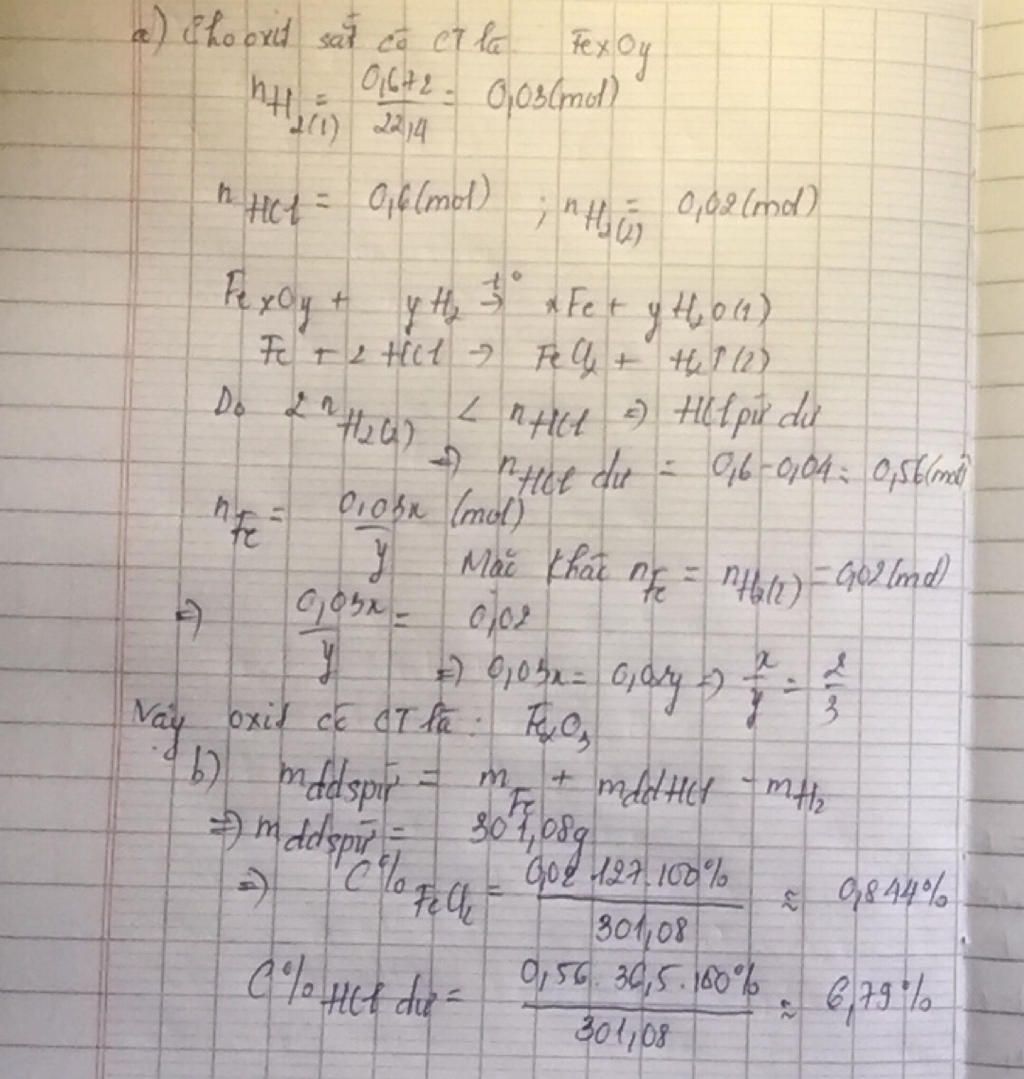 a) Cho oxit sắt có CT là FexOy
nH2(1) = 0,672/22,4 = 0,03(mol)
nHCl = 0,6(mol) ; nH2(2) = 0,02(mol)
FexOy + yH2 →t° xFe + yH2O(1)
Fe + 2HCl → FeCl2 + H2↑(2)
Do 2nH2(2) < nHCl => HCl pứ dư
=> nHCl dư = 0,6 - 0,04 = 0,56(mol)
nFe = 0,03x/y (mol)
Mặc khác nFe = nH2(2) = 0,02(mol)
=> 0,03x/y = 0,02
=> 0,03x = 0,02y => x/y = 2/3
Vậy oxit có CT là : Fe2O3
b) mddspứ = mFe + mddHCl - mH2
=> mddspứ = 301,08g
=> C%FeCl2 = 0,02.127.100%/301,08 ≈ 0,844%
C%HCl dư = 0,56.36,5.100%/301,08 ≈ 6,79%